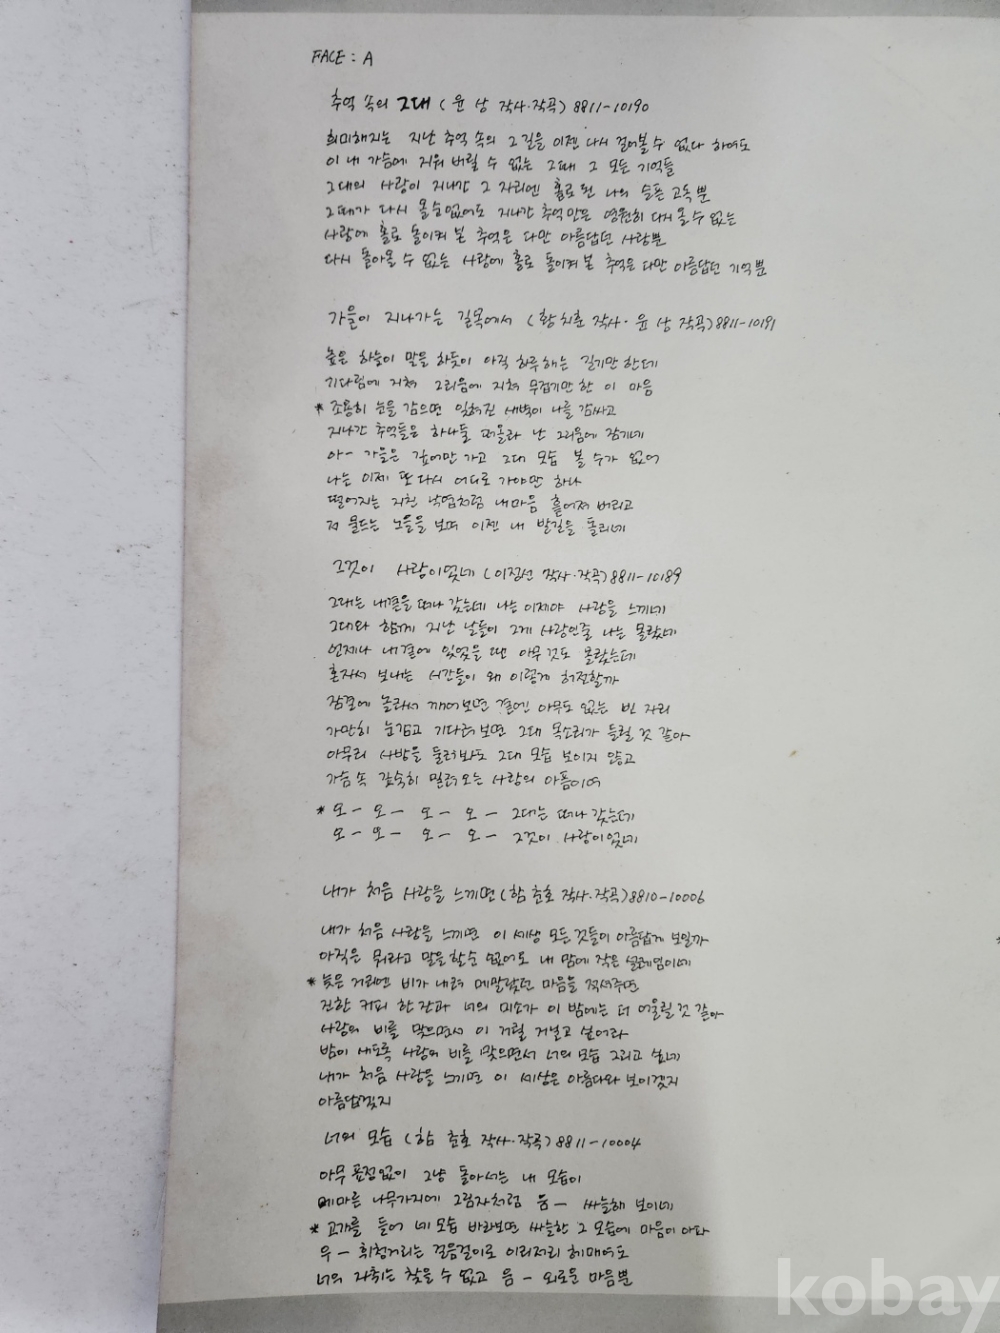 FACE : A
추억 속의 그대 ( 윤 상 작사·작곡 ) 8811-10190
희미해지는 지난 추억 속의 그 길을 이젠 다시 걸어볼 수 없다 하여도
이 내 가슴에 지워 버릴 수 없는 그때 그 모든 기억들
그대의 사랑이 지나간 그 자리엔 홀로 된 나의 슬픈 고독 뿐
그때가 다시 올순 없어도 지나간 추억만은 영원히 다시 올 수 없는
사랑에 홀로 돌이켜 본 추억은 다만 아름답던 사랑뿐
다시 돌아올 수 없는 사랑에 홀로 돌이켜 본 추억은 다만 아름답던 기억 뿐
가을이 지나가는 길목에서 ( 황 치훈 작사· 윤 상 작곡 ) 8811-10191
높은 하늘이 말을 하듯이 아직 하루해는 길기만 한데
기다림에 지쳐 그리움에 지쳐 무겁기만 한 이 마음
* 조용히 눈을 감으면 잊혀진 새벽이 나를 감싸고
지나간 추억들은 하나둘 떠올라 난 그리움에 잠기네
아- 가을은 깊어만 가고 그대 모습 볼 수가 없어
나는 이제 또 다시 어디로 가야만 하나
떨어지는 지친 낙엽처럼 내마음 흩어져 버리고
저 물드는 노을을 보며 이젠 내 발길을 돌리네
그것이 사랑이었네 ( 이정선 작사·작곡 ) 8811-10189
그대는 내곁을 떠나 갔는데 나는 이제야 사랑을 느끼네
그대와 함께 지난 날들이 그게 사랑인줄 나는 몰랐네
언제나 내곁에 있었을 땐 아무 것도 몰랐는데
혼자서 보내는 시간들이 왜 이렇게 허전할까
잠결에 놀라서 깨어보면 곁엔 아무도 없는 빈 자리
가만히 눈감고 기다려보면 그대 목소리가 들릴 것 같아
아무리 사방을 둘러봐도 그대 모습 보이지 않고
가슴 속 깊숙히 밀려 오는 사랑의 아픔이여
* 오- 오- 오- 오- 그대는 떠나 갔는데
오- 오- 오- 오- 그것이 사랑이었네
내가 처음 사랑을 느끼면 ( 함 춘호 작사·작곡 ) 8810-10006
내가 처음 사랑을 느끼면 이 세상 모든 것들이 아름답게 보일까
아직은 뭐라고 말을 할순 없어도 내 맘에 작은 설레임이네
* 늦은 거리엔 비가 내려 메말랐던 마음을 적셔주면
진한 커피 한 잔과 너의 미소가 이 밤에는 더 어울릴 것 같아
사랑의 비를 맞으면서 이 거릴 거닐고 싶어라
밤이 새도록 사랑의 비를 맞으면서 너의 모습 그리고 싶네
내가 처음 사랑을 느끼면 이 세상은 아름다와 보이겠지
아름답겠지
너의 모습 ( 함 춘호 작사·작곡 ) 8811-10004
아무 표정없이 그냥 돌아서는 내 모습이
메마른 나무가지에 그림자처럼 음- 싸늘해 보이네
* 고개를 들어 네 모습 바라보면 싸늘한 그 모습에 마음이 아파
우- 휘청거리는 걸음걸이로 이리저리 헤매여도
너의 자취는 찾을 수 없고 음- 외로운 마음뿐
kobay